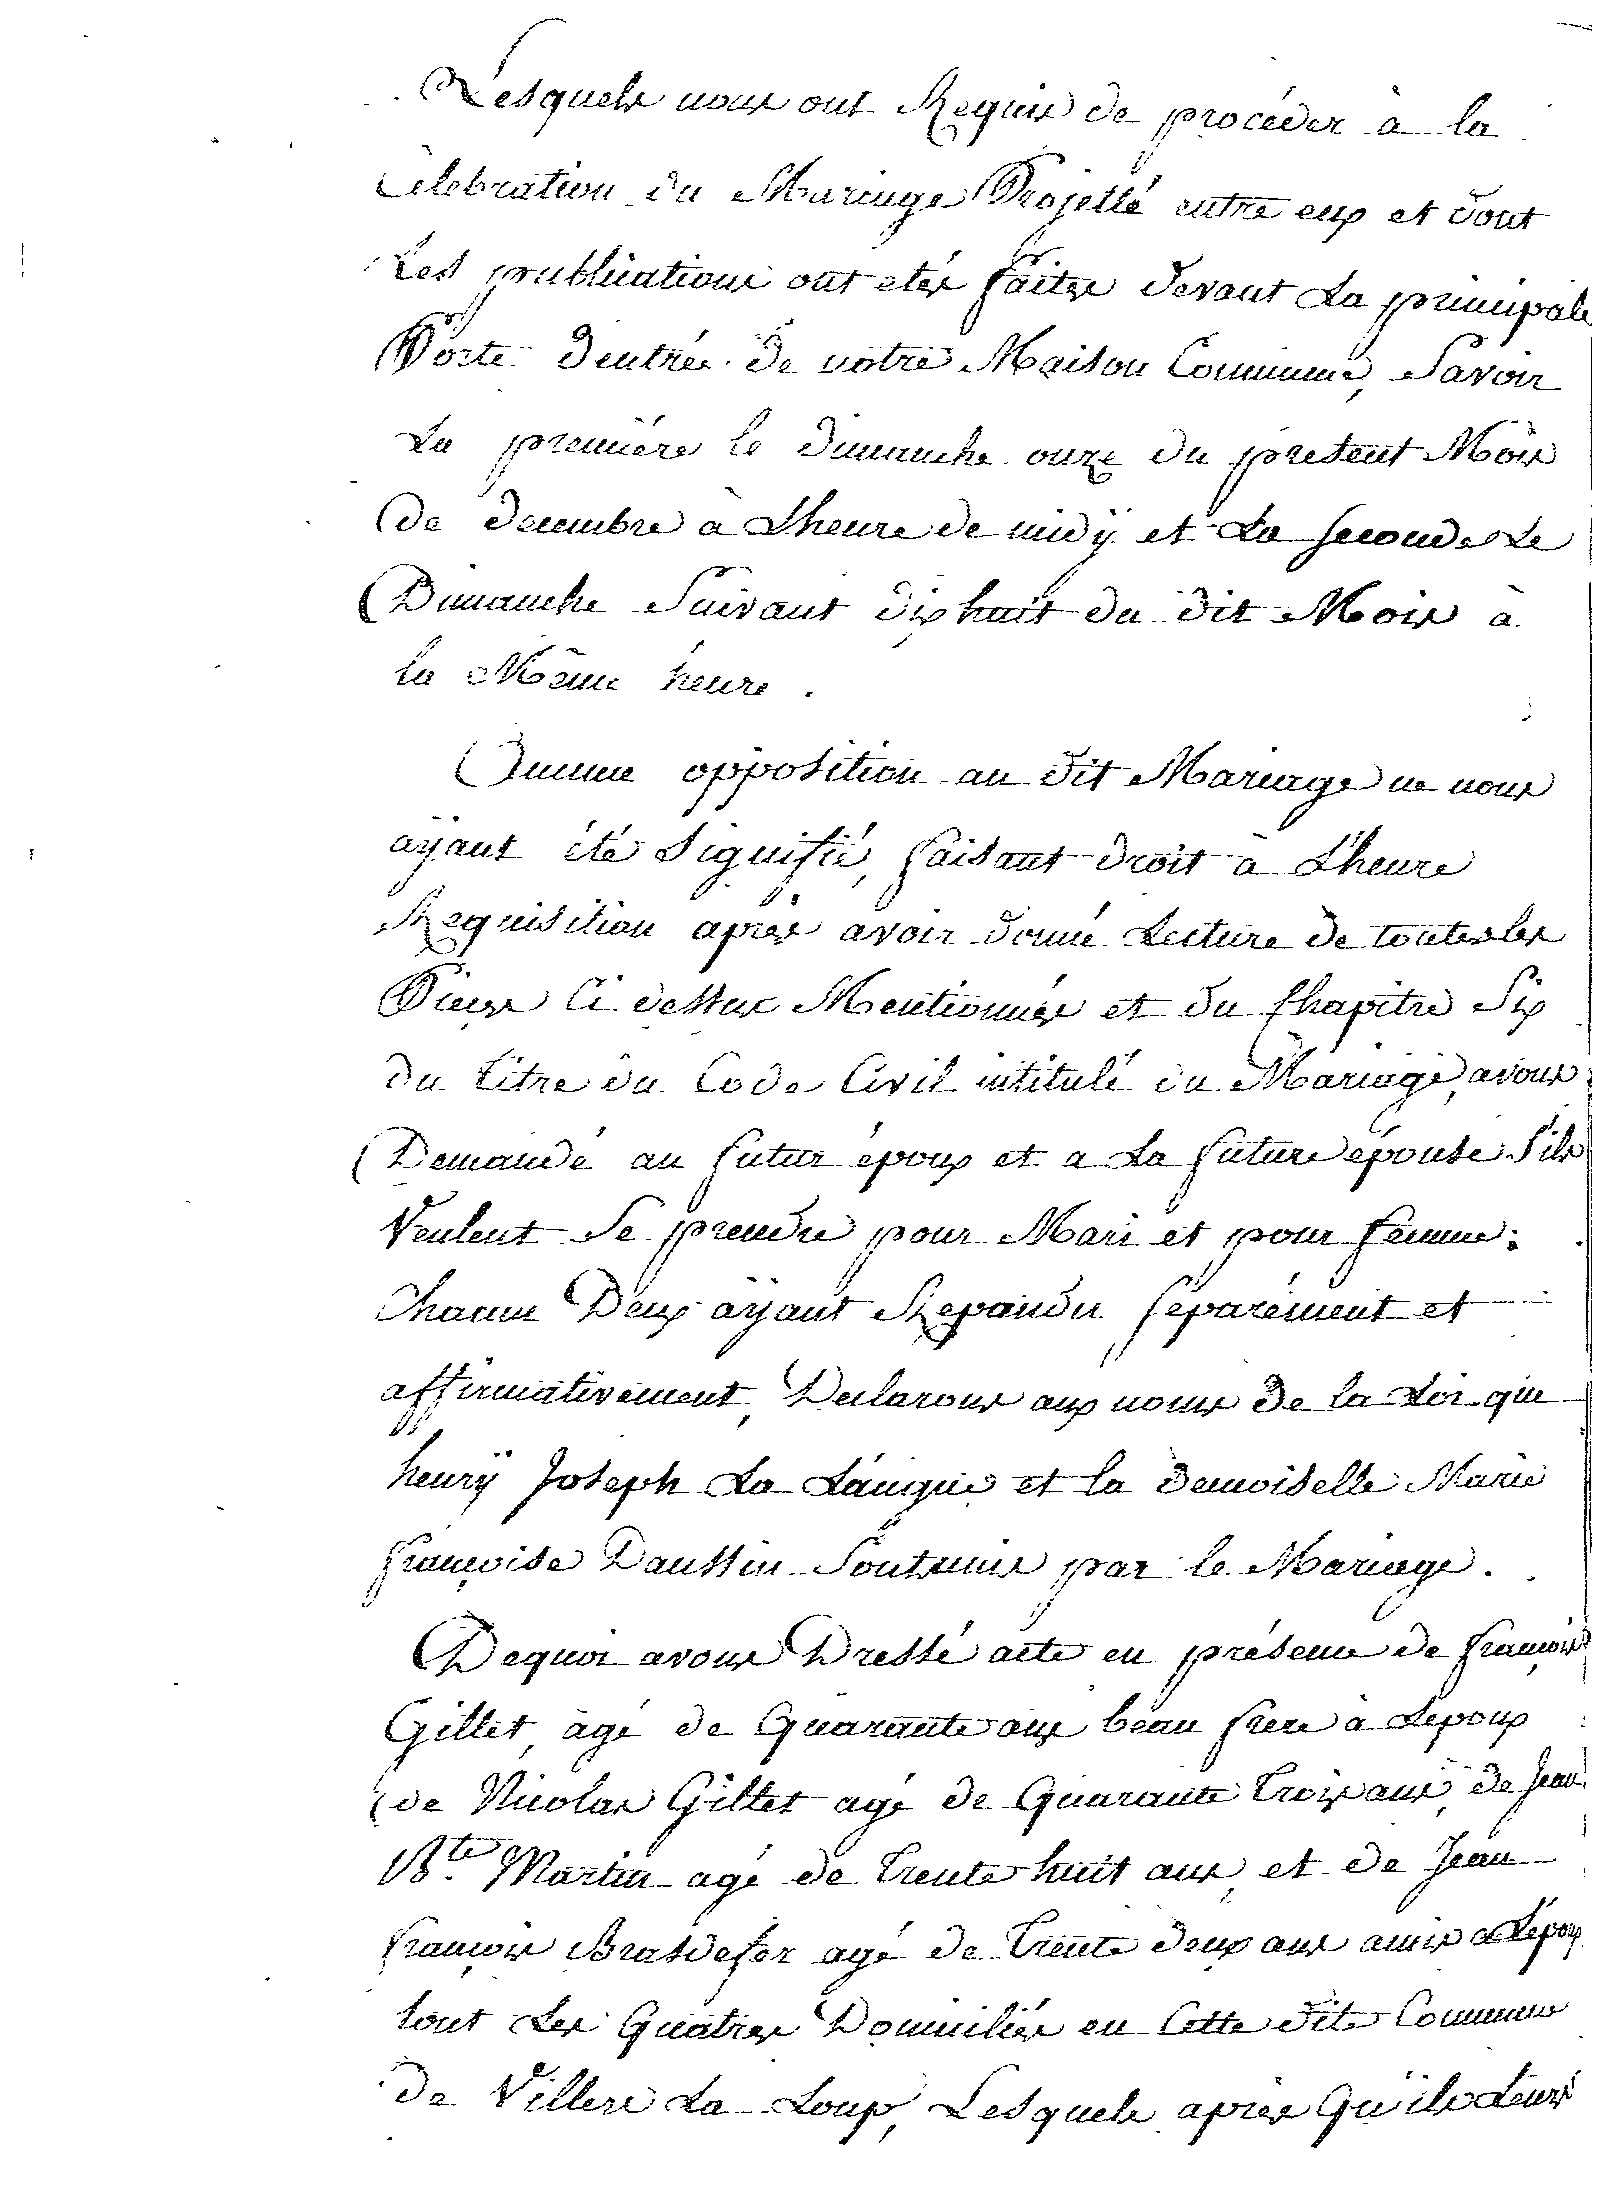 Lesquels nous ont Requis de procéder à la
Célebration du Mariage Projetté entre eux et dont
Les publications ont etés faites devant La principale
Porte d'entrée de notre Maison Commune, Savoir
La première le dimanche onze du present Mois
de decembre a L'heure de midÿ et La seconde Le
Dimanche Suivant dix huit du dit Mois à
la Même heure.
Aucune opposition au dit Mariage ne nous
aÿant été Signifié, faisant droit à L'heure
Requisition après avoir donné Lecture de toutes les
Pieces Ci dessus Mentionnées et du Chapitre Six
du titre du Code Civil intitulé du Mariage, avons
Demandé au futur époux et a La future épouse S'ils
Veulent Se prendre pour Mari et pour femme:
Chacun Deux aÿant Repondu séparément et
affirmativement, Declarons aux noms de la Loi que
henrÿ Joseph La Laugue et la demoiselle Marie
françoise Daussin Sont unis par le Mariage.
De quoi avons Dressé acte en présence de françois
Gillet, agé de Quarante ans beau frere à Lepoux
de Nicolas Gillet agé de Quarante trois ans, de Jean
Bte. Martin agé de trente huit ans, et de Jean
françois Brasdefer agé de trente deux ans amis a L'époux
tout Les Quatres Domiciliés en Cette dite Commune
de Villers La Loup, Lesquels après Qu'ils Leurs